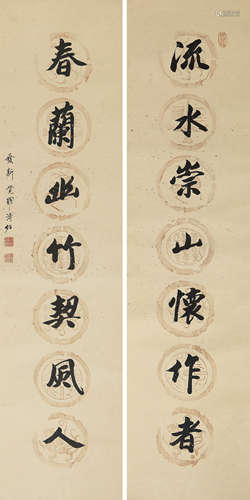 流水崇山懷作者
春蘭幽竹契風人
愛新覺羅溥佐